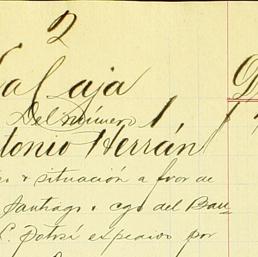 2
La Caja
Del número 1
Antonio Herrán
situación a favor de
Santiago. cgo del Ban
L. Potosí expedido por